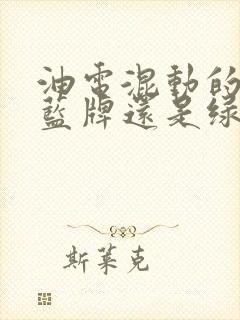 油電混動的
藍牌還是綠
斯萊克